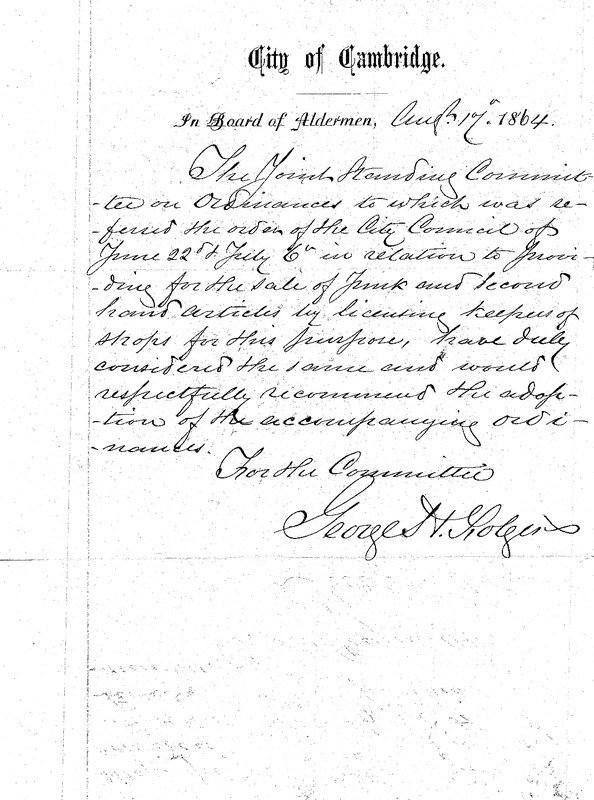 City of Cambridge.
In Board of Aldermen, Aug. 17. 1864.
The Joint Standing Commit-
-tee on Ordinances to which was re-
-ferred the order of the City Council of
June 22d & July 6th in relation to provi-
-ding for the sale of Junk and Second
hand articles by licensing keepers of
shops for this purpose, have duly
considered the same and would
respectfully recommend the adop-
-tion of the accompanying ordi-
-nances.
For the Committee
George